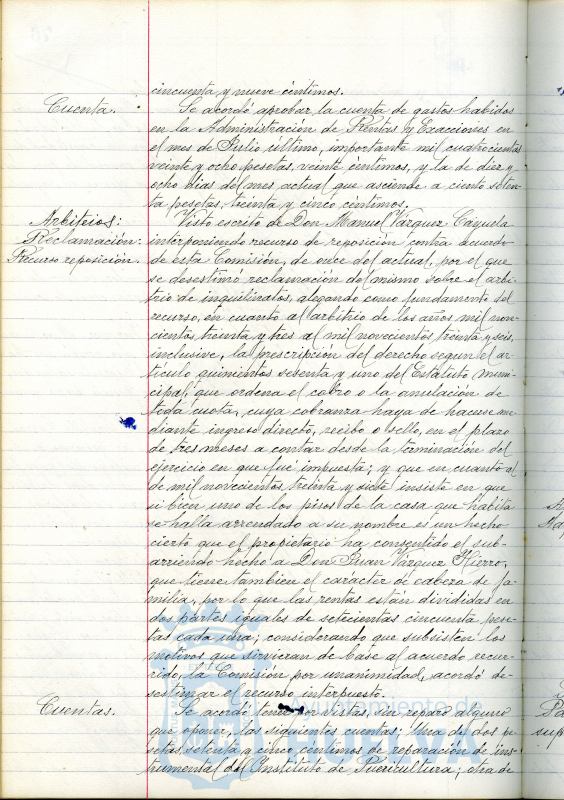 cincuenta y nueve céntimos.
Cuenta.
Se acordó aprobar la cuenta de gastos habidos
en la Administración de Rentas y Exacciones en
el mes de Julio último, importante mil cuatrocientas
veinte y ocho pesetas, veinte céntimos, y la de diez y
ocho dias del mes actual que asciende a ciento seten-
ta pesetas, treinta y cinco céntimos.
Arbitrios:
Reclamación:
Recurso reposición.
Visto escrito de Don Manuel Vázquez Cayuela
interponiendo recurso de reposición contra acuerdo
de esta Comisión, de once del actual, por el que
se desestimó reclamación del mismo sobre el arbi-
trio de inquilinatos, alegando como fundamento del
recurso, en cuanto al arbitrio de los años mil nove-
cientos treinta y tres al mil novecientos treinta y seis
inclusive, la prescripción del derecho segun el ar-
tículo quinientos sesenta y uno del Estatuto Muni-
cipal, que ordena el cobro o la anulación de
toda cuota, cuya cobranza haya de hacerse me-
diante ingreso directo, recibo o sello, en el plazo
de tres meses a contar desde la terminación del
ejercicio en que fué impuesta; y que en cuanto al
de mil novecientos treinta y siete insiste en que
si bien uno de los pisos de la casa que habita
se halla arrendado a su nombre es un hecho
cierto que el propietario ha consentido el sub-
arriendo hecho a Don Juan Vázquez Hierro,
que tiene tambien el carácter de cabeza de fa-
milia, por lo que las rentas están divididas en
dos partes iguales de setecientas cincuenta pese-
tas cada una; considerando que subsisten los
motivos que sirvieran de base al acuerdo recur-
rido, la Comisión por unanimidad, acordó de-
sestimar el recurso interpuesto.
Cuentas.
Se acordó tener por vistas, sin reparo alguno
que oponer, las siguientes cuentas: Una de dos pe-
setas, setenta y cinco céntimos de reparación de ins-
trumental del Instituto de Puericultura; otra de
Ayuntamiento de